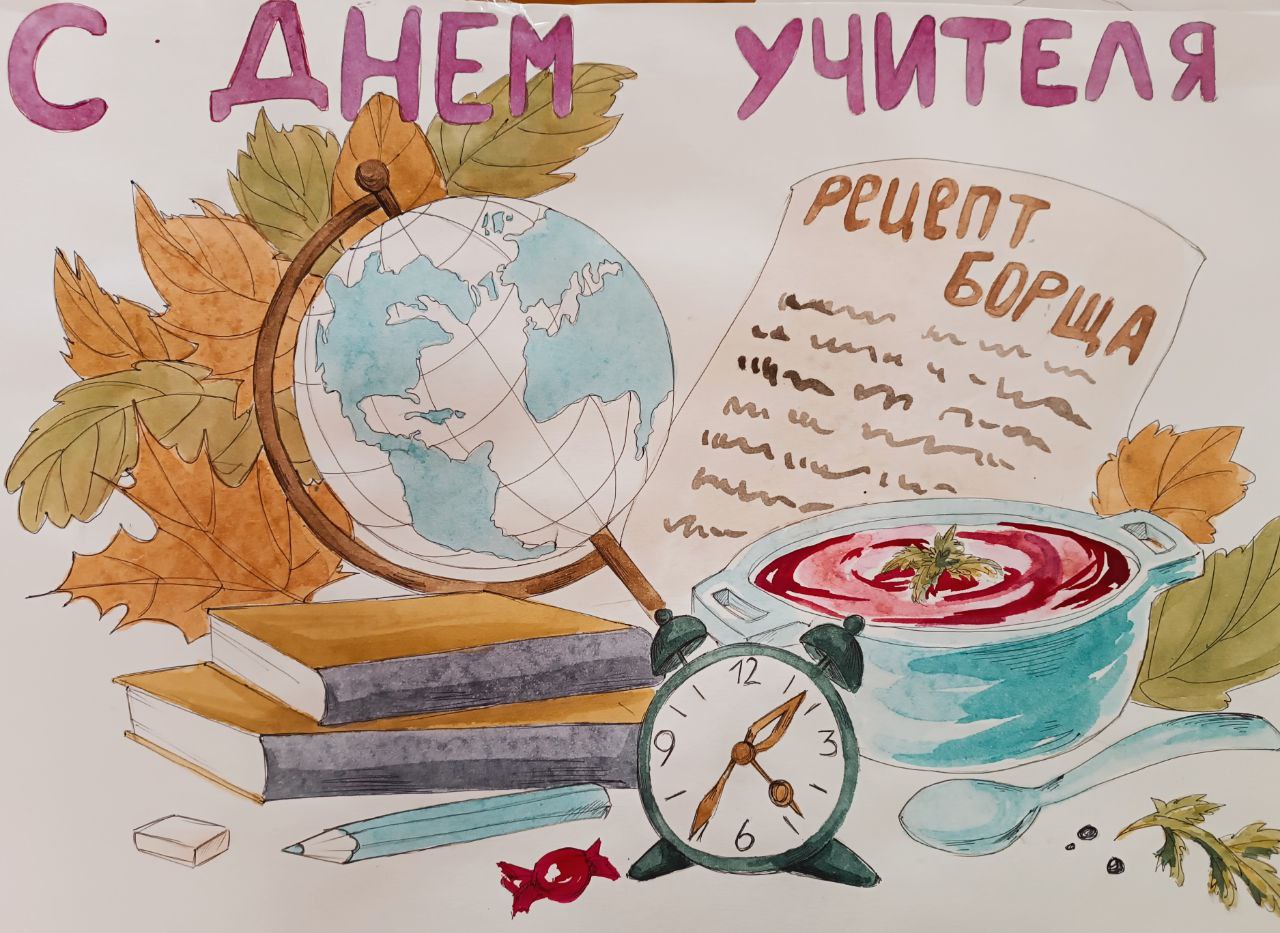 С ДНЕМ УЧИТЕЛЯ
РЕЦЕПТ
БОРЩА
12
9
3
6